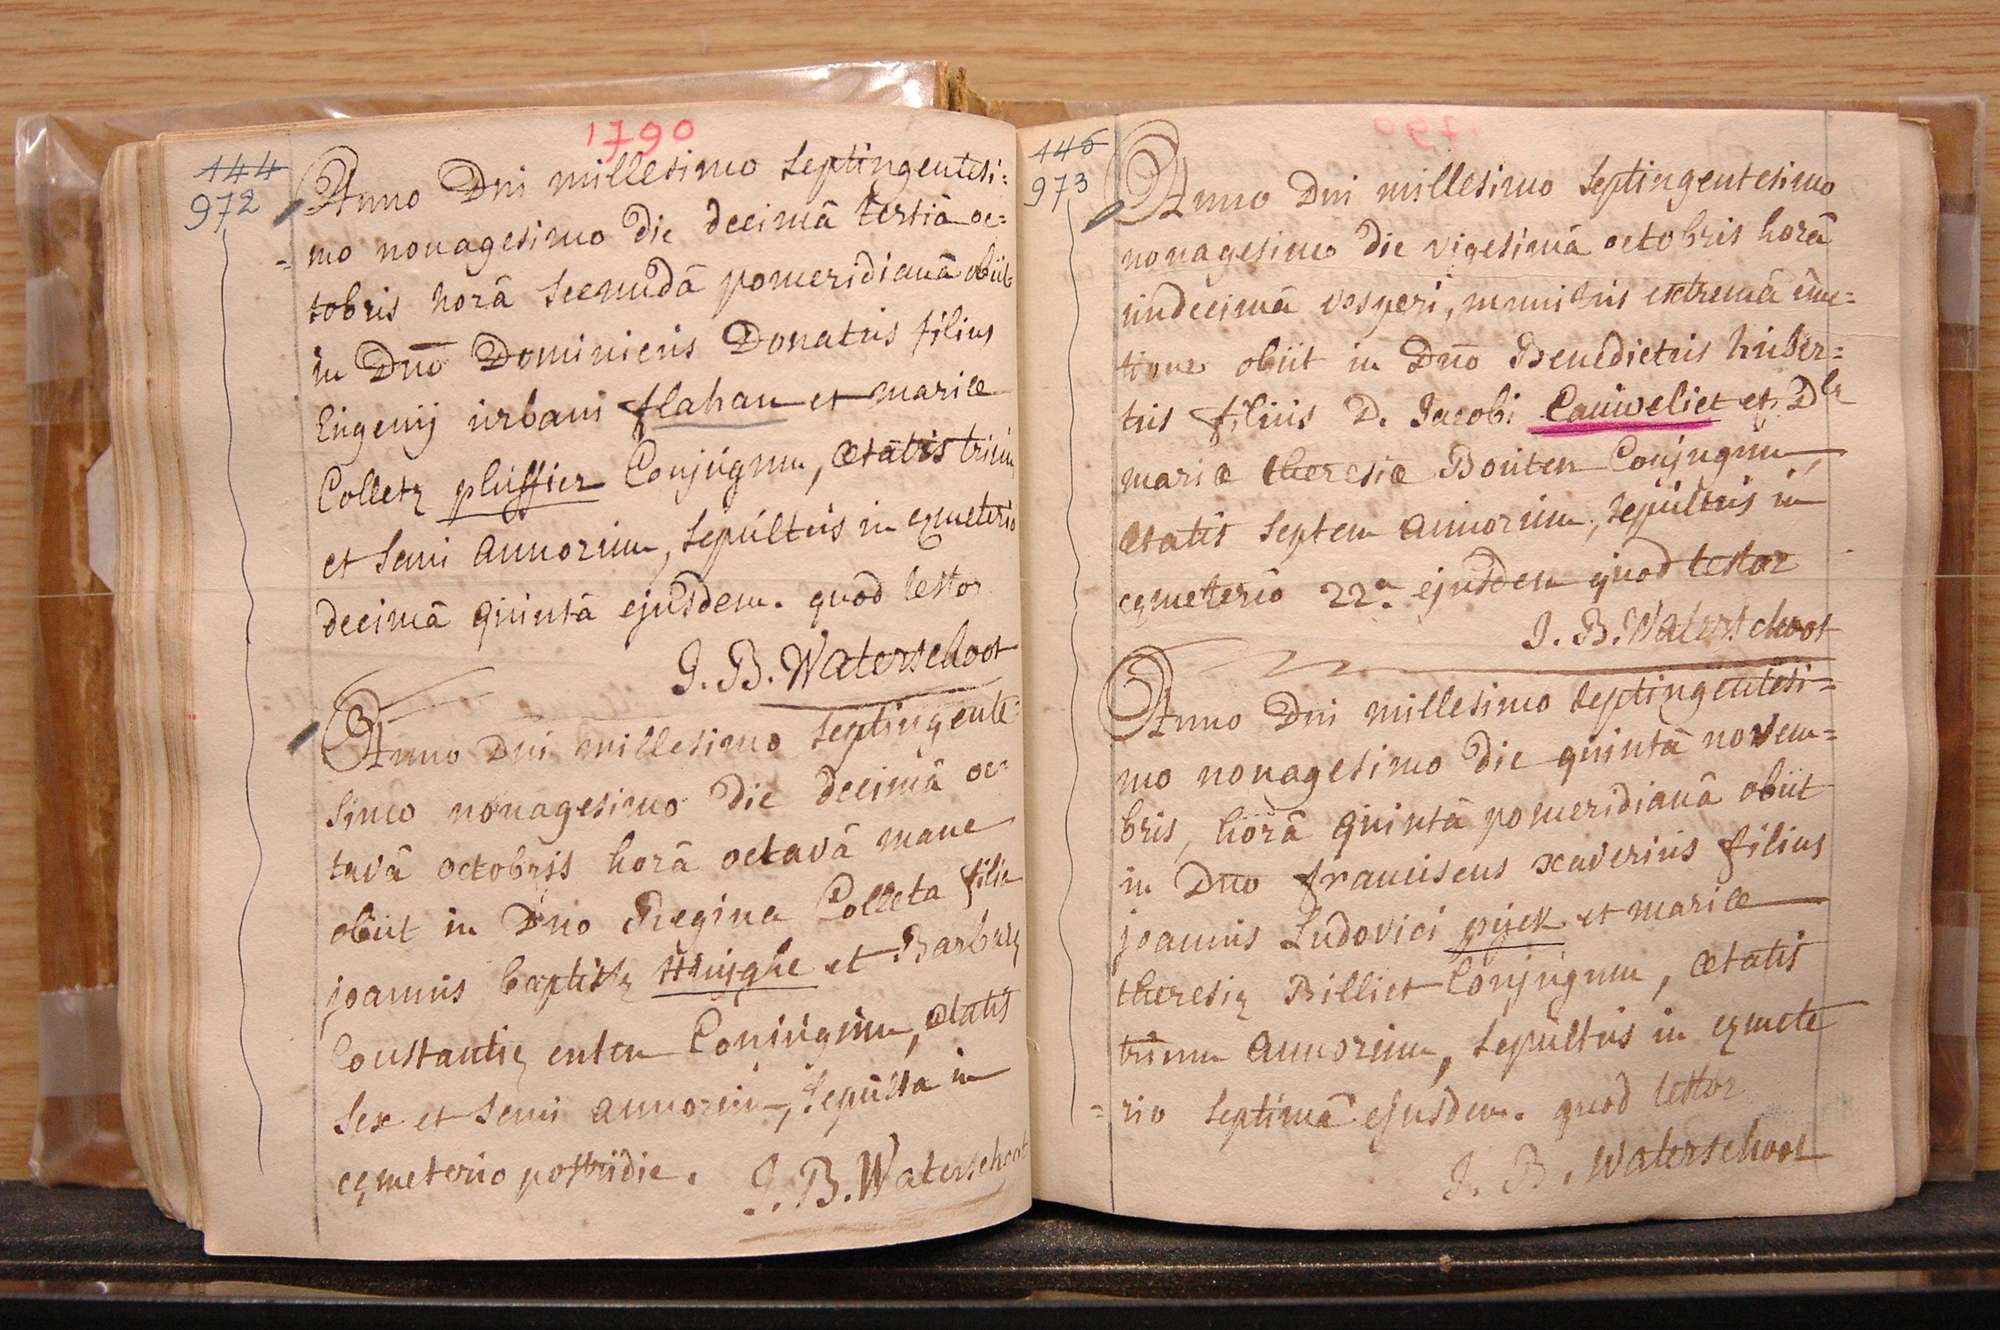 1790
144
972
Anno Dni millesimo septingentesi=
=mo nonagesimo die decimâ tertiâ oc=
tobris horâ secundâ pomeridianâ obiit
in Dno Dominicus Donatus filius
Eugenij urbani flahau et mariæ
Colletę pluffier Conjugum, ætatis trium
et semi annorum, sepultus in cymeterio
decimâ quintâ ejusdem. quod testor
J. B. Waterschoot
Anno Dni millesimo septingente=
simo nonagesimo die decimâ oc=
tavâ octobris horâ octavâ mane
obiit in Dno Regina Colleta filia
joannis baptistę Huijghe et Barbarę
Constantię enten Conjugum, ætatis
sex et semi annorum, sepulta in
cymeterio postridie.
J. B. Waterschoot
146
973
Anno Dni millesimo septingentesimo
nonagesimo die vigesimâ octobris horâ
undecimâ vesperi, munitus extremâ unc=
tione obiit in Dno Benedictus huber=
tus filius D. Jacobi Cauweliet et Dlæ
mariæ theresiæ Bouten Conjugum,
ætatis septem annorum, sepultus in
cymeterio 22â. ejusdem quod testor
J. B. Waterschoot
Anno Dni millesimo septingentesi=
mo nonagesimo die quintâ novem=
bris, horâ quintâ pomeridianâ obiit
in Dno franciscus xaverius filius
joannis Ludovici pijck et mariæ
theresię Billiet Conjugum, ætatis
trium annorum, sepultus in cymete
=rio septimâ ejusdem. quod testor
J. B. Waterschoot